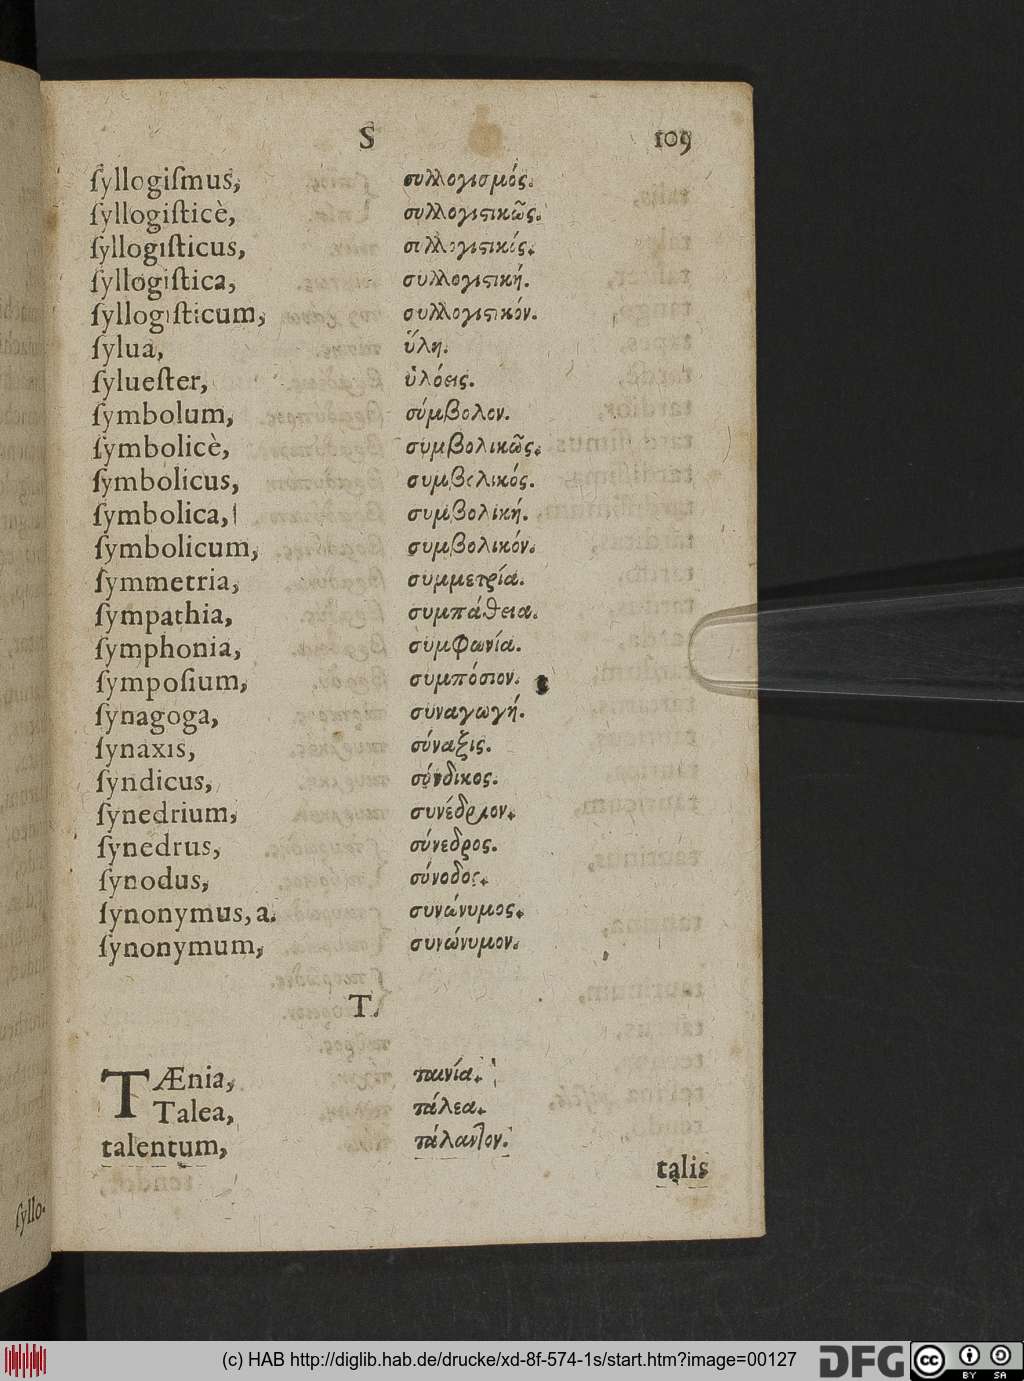 S 109
ſyllogiſmus, συλλογισμός.
ſyllogiſticè, συλλογιϛικῶς.
ſyllogiſticus, συλλογιϛικός.
ſyllogiſtica, συλλογιϛική.
ſyllogiſticum, συλλογιϛικόν.
ſylua, ὕλη.
ſylueſter, ὑλόεις.
ſymbolum, σύμβολον.
ſymbolicè, συμβολικῶς.
ſymbolicus, συμβολικός.
ſymbolica, συμβολική.
ſymbolicum, συμβολικόν.
ſymmetria, συμμετρία.
ſympathia, συμπάθεια.
ſymphonia, συμφωνία.
ſympoſium, συμπόσιον.
ſynagoga, συναγωγή.
ſynaxis, σύναξις.
ſyndicus, σύνδικος.
ſynedrium, συνέδριον.
ſynedrus, σύνεδρος.
ſynodus, σύνοδος.
ſynonymus, a. συνώνυμος.
ſynonymum, συνώνυμον.
T.
TÆnia, ταινία.
Talea, τάλεα.
talentum, τάλαντον.
talis
ſyllo-
(c) HAB http://diglib.hab.de/drucke/xd-8f-574-1s/start.htm?image=00127 DFG cc BY SA